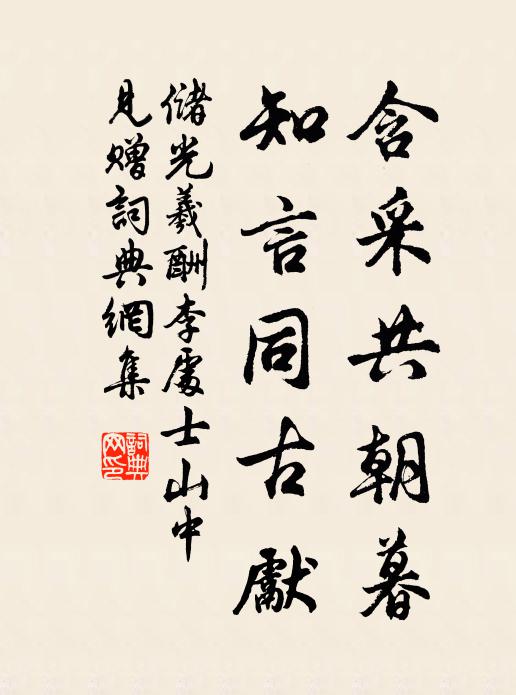 含采共朝暮
知言同古獻
儲光羲酬李處士山中
見贈詞典網集
詞典网印